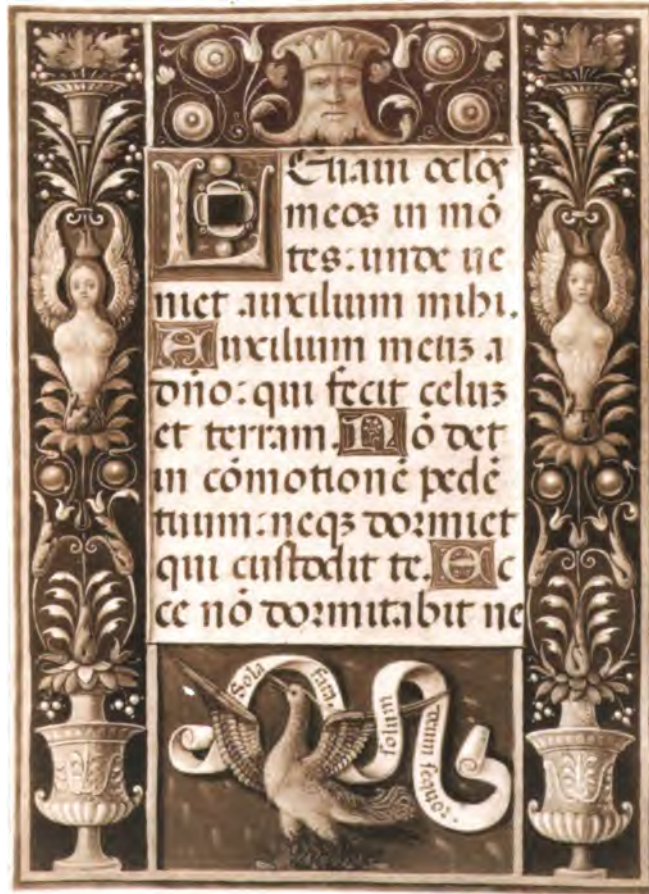 LEuaui oclos
meos in mō
tes: unde ue
niet auxilium mihi.
Auxilium meuz a
dño: qui fecit celuz
et terram. Nō det
in cōmotionē pedē
tuum: neqz dormiet
qui custodit te. Ec
ce nō dormitabit ne
Sola fata, solum deum sequor.